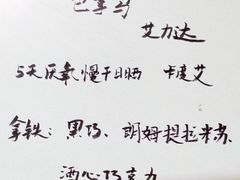 巴拿马
艾力达
5天厌氧慢干日晒 卡度艾
拿铁：黑巧、朗姆提拉米苏、
酒心巧克力